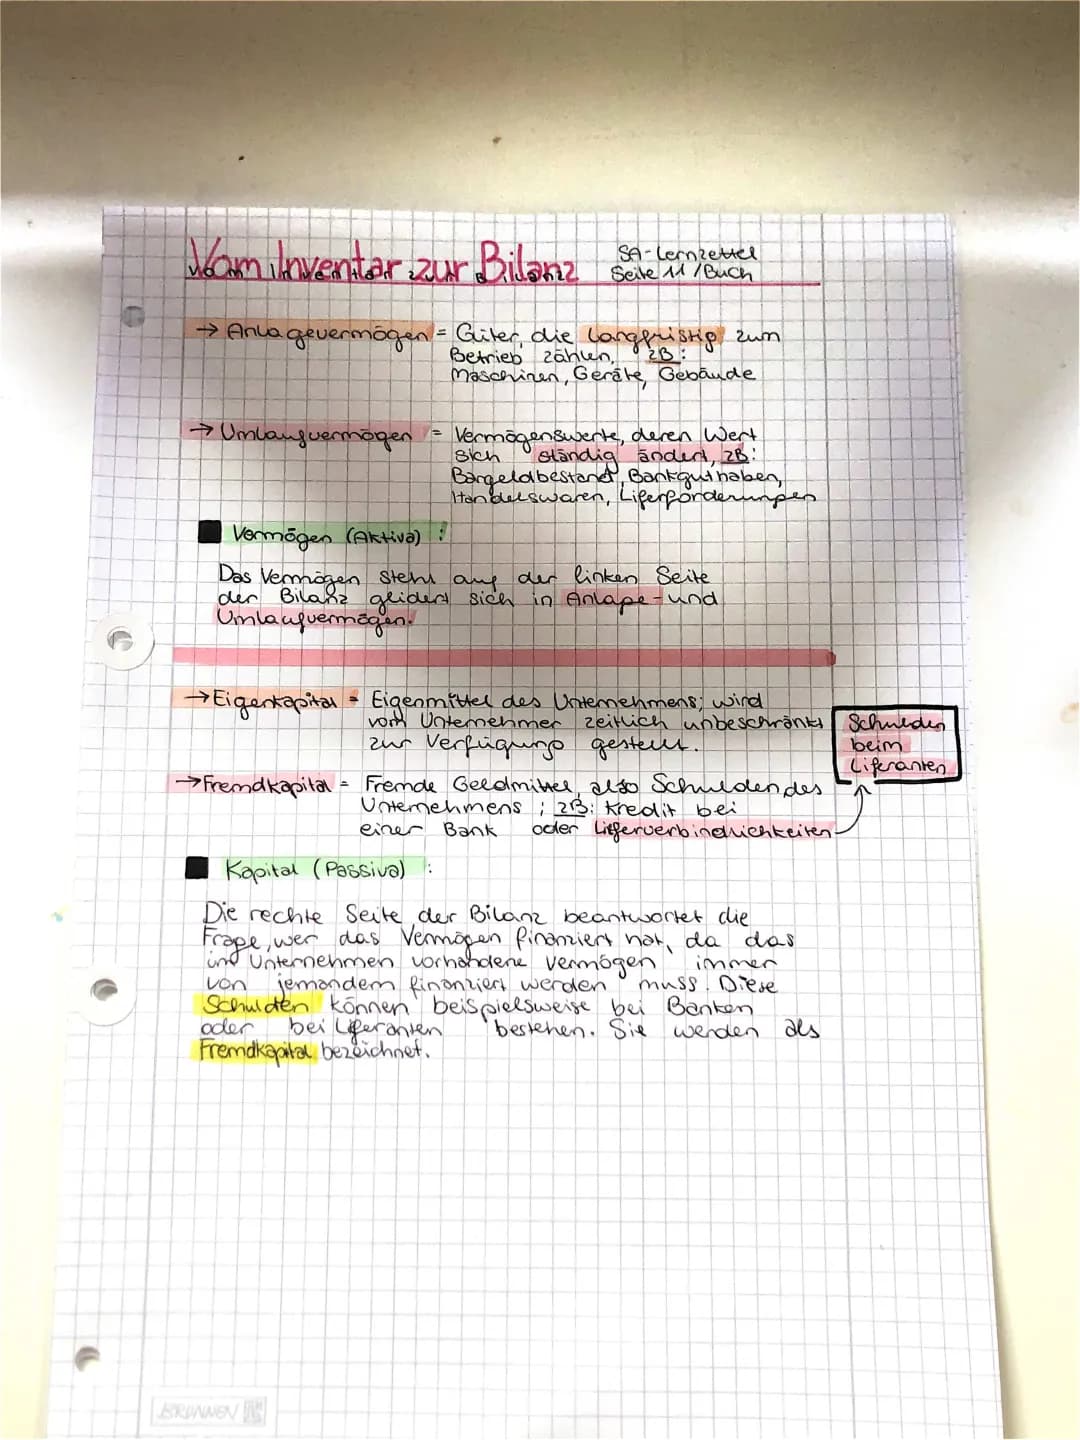 Vom Inventar zur Bilanz
SA-Lernzettel
Seite 11 / Buch
→ Anlagevermögen = Güter, die langfristig zum
Betrieb zählen, zB:
Maschinen, Geräte, Gebäude
→ Umlaufvermögen = Vermögenswerte, deren Wert
sich ständig ändert, zB:
Bargeldbestand, Bankguthaben,
Handelswaren, Liferforderungen
Vermögen (Aktiva) :
Das Vermögen steht auf der linken Seite
der Bilanz glidert sich in Anlage- und
Umlaufvermögen.
→ Eigenkapital = Eigenmittel des Unternehmens; wird
vom Unternehmer zeitlich unbeschränkt
zur Verfügung gestellt.
Schulden
beim
Liferanten
→ Fremdkapital = Fremde Geldmittel, also Schulden des
Unternehmens ; zB: Kredit bei
einer Bank oder Liferverbindlichkeiten
Kapital (Passiva) :
Die rechte Seite der Bilanz beantwortet die
Frage, wer das Vermögen finanziert hat, da das
im Unternehmen vorhandene Vermögen immer
von jemandem finanziert werden muss. Diese
Schulden können beispielsweise bei Banken
oder bei Liferanten bestehen. Sie werden als
Fremdkapital bezeichnet.
BRUNNEN